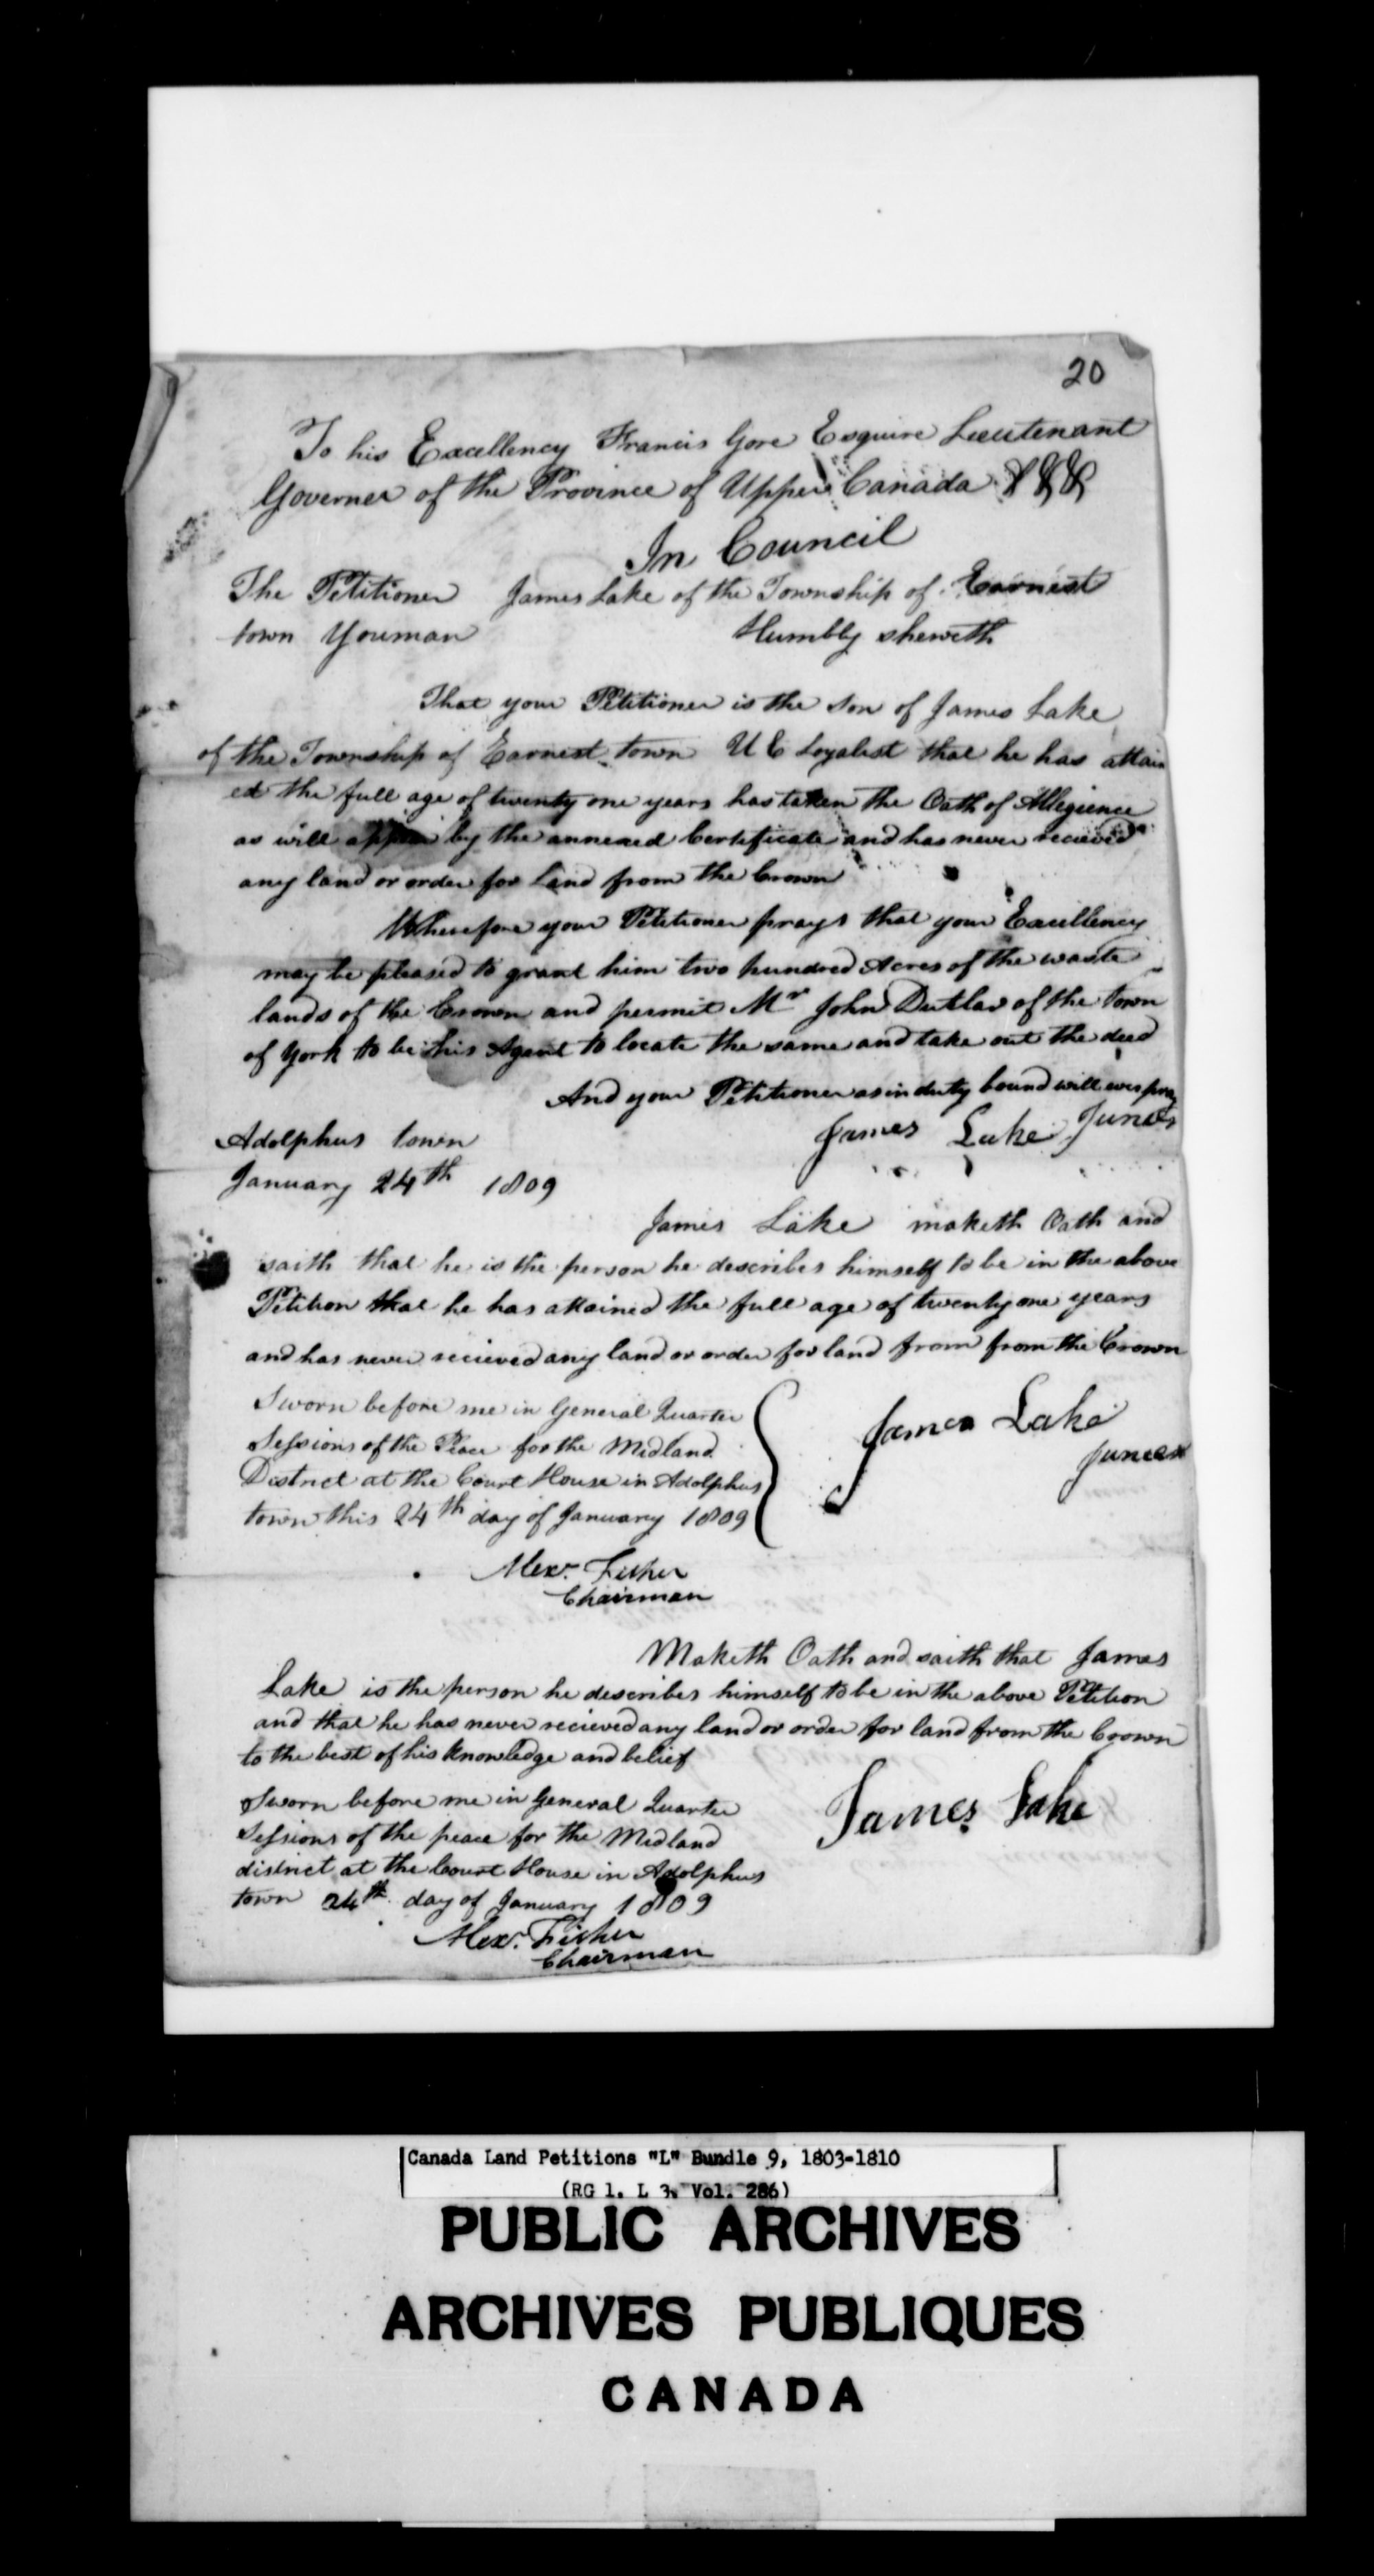 20
To his Excellency Francis Gore Esquire Lieutenant
Governer of the Province of Upper Canada &&&
In Council
The Petitioner James Lake of the Township of Earnest
town Youman Humbly sheweth
That your Petitioner is the son of James Lake
of the Township of Earnest town U E Loyalist that he has attain
ed the full age of twenty one years has taken the Oath of Allegience
as will appear by the annexed Certificate and has never recieved
any land or order for Land from the Crown
Wherefore your Petitioner prays that your Excellency
may be pleased to grant him two hundred Acres of the waste
lands of the Crown and permit Mr John Detlar of the town
of York to be his Agent to locate the same and take out the deed
And your Petitioner as in duty bound will ever pray
James Lake Juner
Adolphus town
January 24th 1809
James Lake maketh Oath and
saith that he is the person he describes himself to be in the above
Petition that he has attained the full age of twenty one years
and has never recieved any land or order for land from from the Crown
Sworn before me in General Quarter
Sessions of the Peace for the Midland
District at the Court House in Adolphus
town this 24th day of January 1809
James Lake
Juner
Alexr. Fisher
Chairman
Maketh Oath and saith that James
Lake is the person he describes himself to be in the above Petition
and that he has never recieved any land or order for land from the Crown
to the best of his knowledge and belief
Sworn before me in General Quarter
Sessions of the peace for the Midland
district at the Court House in Adolphus
town 24th day of January 1809
James Lake
Alexr. Fisher
Chairman
Canada Land Petitions "L" Bundle 9, 1803-1810
(RG 1, L 3, Vol. 286)
PUBLIC ARCHIVES
ARCHIVES PUBLIQUES
CANADA